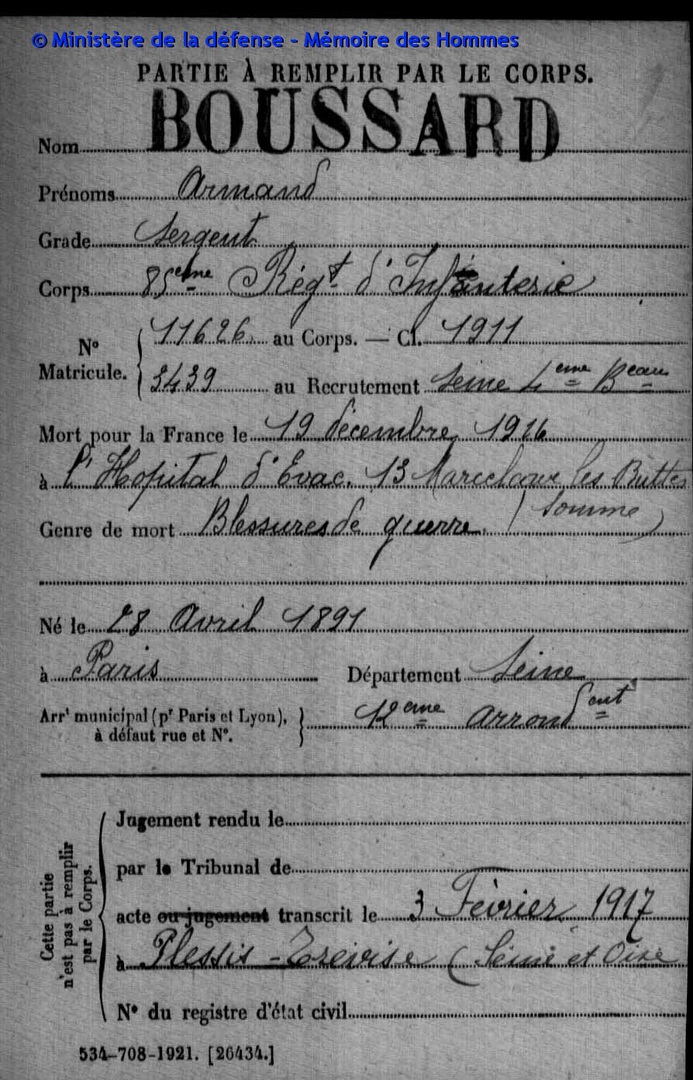 © Ministère de la défense - Mémoire des Hommes
PARTIE À REMPLIR PAR LE CORPS.
Nom BOUSSARD
Prénoms Armand
Grade Sergent
Corps 85eme Régt d'Infanterie
N° Matricule. 11626 au Corps. — Cl. 1911
3439 au Recrutement Seine 4eme Beau
Mort pour la France le 19 décembre 1916
à l'Hopital d'Evac. 13 Marcelcave les Buttes
(Somme)
Genre de mort Blessures de guerre
Né le 28 Avril 1891
à Paris Département Seine
Arrt municipal (pr Paris et Lyon), à défaut rue et N°. 12eme Arrondent
Cette partie n'est pas à remplir par le Corps.
Jugement rendu le
par le Tribunal de
acte ou jugement transcrit le 3 Février 1917
à Plessis-Trevise (Seine et Oise
N° du registre d'état civil
534-708-1921. [26434.]